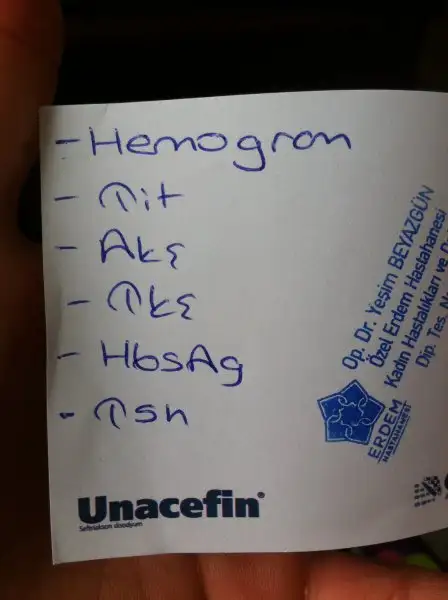 - Hemogram
- Tit
- Akş
- Tkş
- HbsAg
- Tsh
Op. Dr. Yeşim BEYAZGÜN
Özel Erdem Hastahanesi
Kadın Hastalıkları ve
Dip. Tes.
ERDEM
HASTAHANESİ
Unacefin®
Seftriakson disodyum